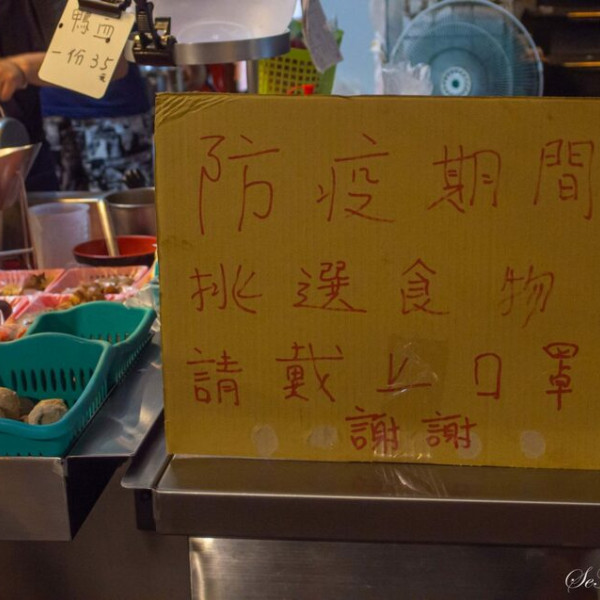 鴨血
一份35元
防疫期間
挑選食物
請戴上口罩
謝謝